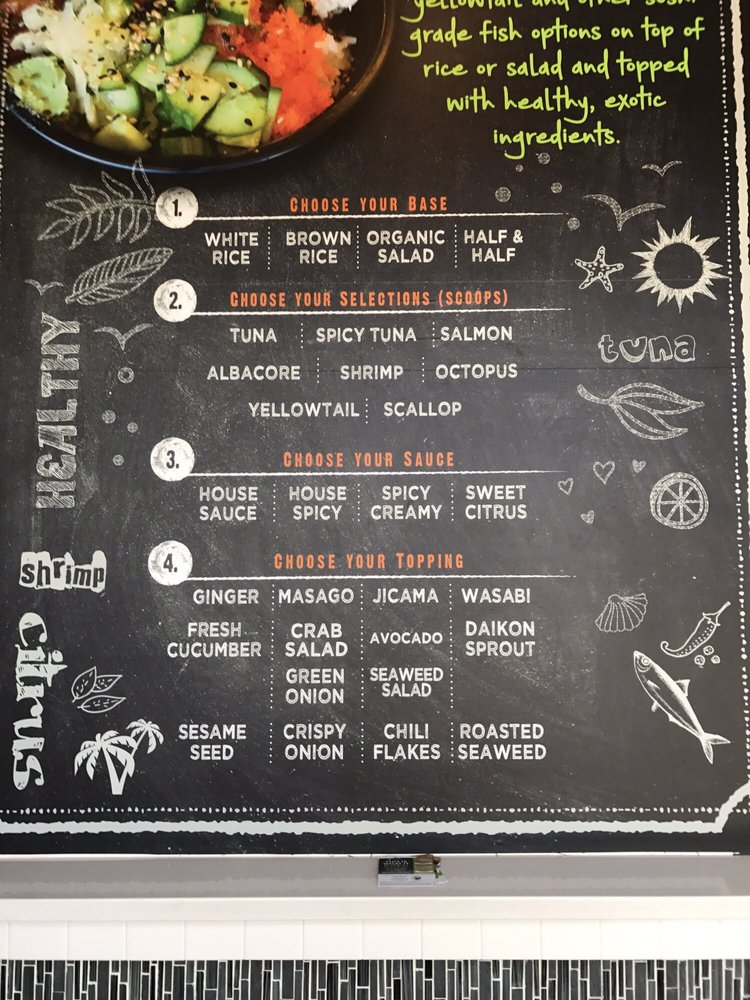 yellowtail and other sushi
grade fish options on top of
rice or salad and topped
with healthy, exotic
ingredients.
1. CHOOSE YOUR BASE
WHITE RICE BROWN RICE ORGANIC SALAD HALF & HALF
2. CHOOSE YOUR SELECTIONS (SCOOPS)
TUNA SPICY TUNA SALMON
ALBACORE SHRIMP OCTOPUS
YELLOWTAIL SCALLOP
tuna
HEALTHY
3. CHOOSE YOUR SAUCE
HOUSE SAUCE HOUSE SPICY SPICY CREAMY SWEET CITRUS
4. CHOOSE YOUR TOPPING
shrimp
GINGER MASAGO JICAMA WASABI
FRESH CUCUMBER CRAB SALAD AVOCADO DAIKON SPROUT
GREEN ONION SEAWEED SALAD
citrus
SESAME SEED CRISPY ONION CHILI FLAKES ROASTED SEAWEED